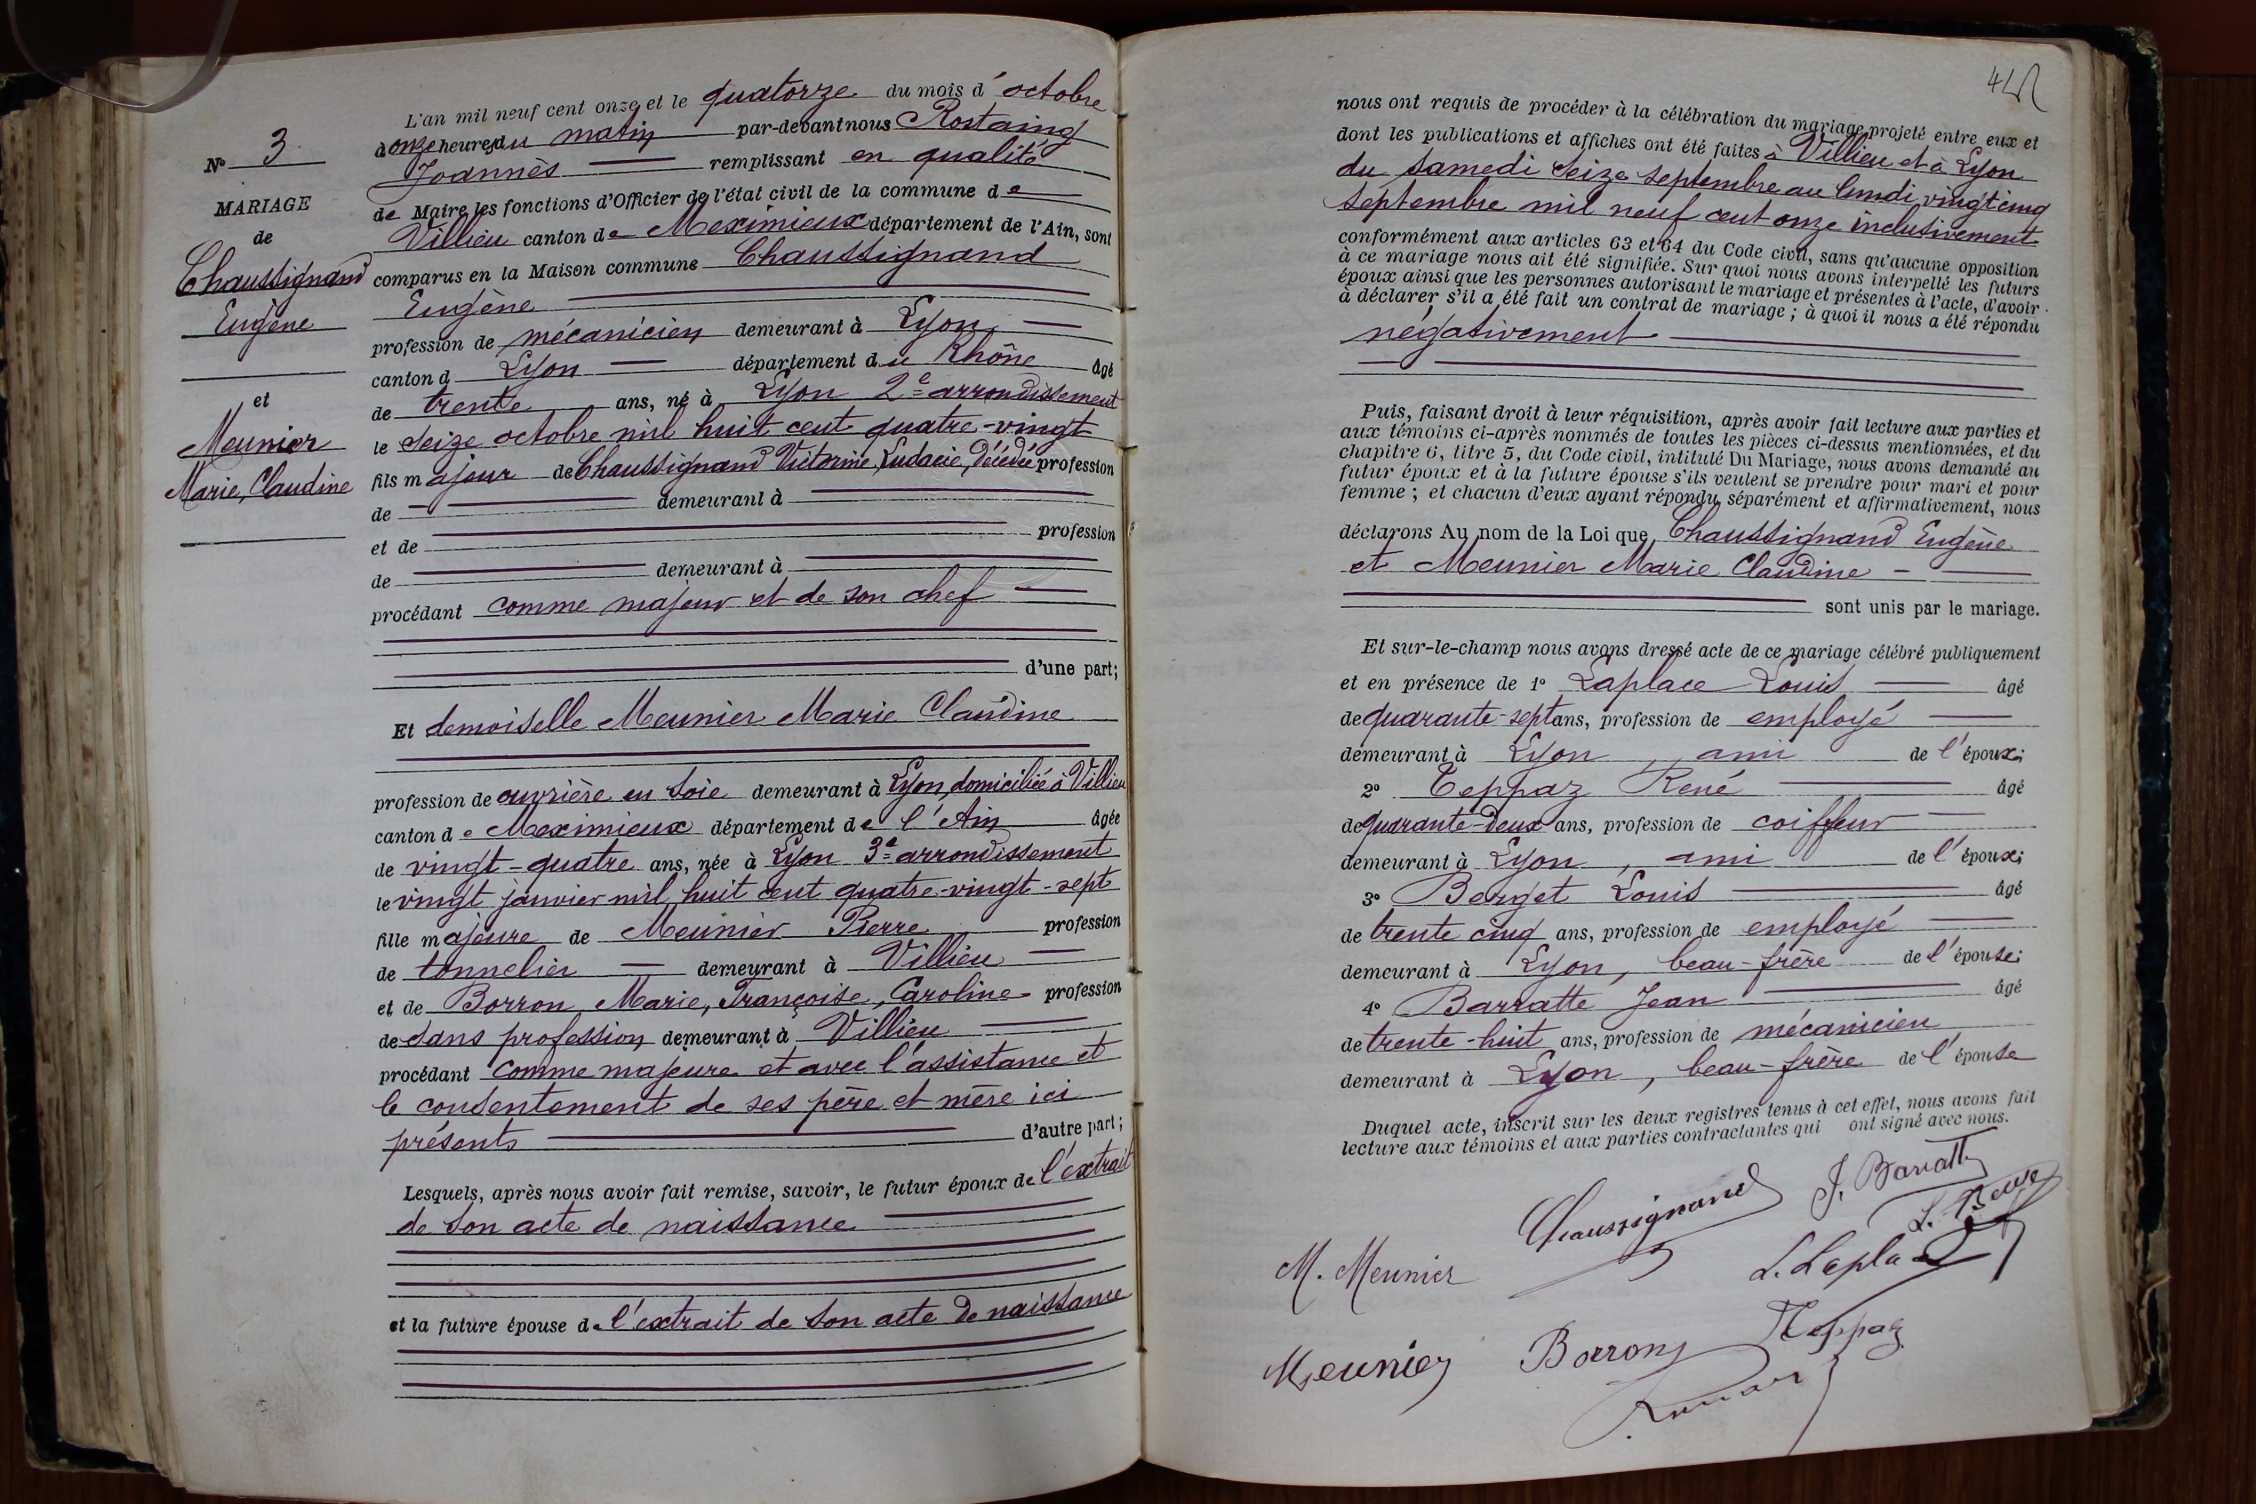 L'an mil neuf cent onze et le quatorze du mois d'octobre
à onze heures du matin par-devant nous Rostaing
Joannès remplissant en qualité
de Maire les fonctions d'Officier de l'état civil de la commune de
Villieu canton de Meximieux département de l'Ain, sont
comparus en la Maison commune Chaussignand
Eugène
profession de mécanicien demeurant à Lyon
canton d Lyon département du Rhône âgé
de trente ans, né à Lyon 2e arrondissement
le seize octobre mil huit cent quatre-vingt
fils majeur de Chaussignand Victorine, décédée profession
de demeurant à
et de profession
de demeurant à
procédant comme majeur et de son chef
d'une part;
Et demoiselle Meunier Marie Claudine
profession de ouvrière en soie demeurant à Lyon, domiciliée à Villieu
canton de Meximieux département de l'Ain âgée
de vingt-quatre ans, née à Lyon 3e arrondissement
le vingt janvier mil huit cent quatre-vingt-sept
fille majeure de Meunier Pierre profession
de tonnelier demeurant à Villieu
et de Borron Marie, Françoise, Caroline profession
de sans profession demeurant à Villieu
procédant comme majeure et avec l'assistance et
le consentement de ses père et mère ici
présents d'autre part;
Lesquels, après nous avoir fait remise, savoir, le futur époux de l'extrait
de son acte de naissance
et la future épouse de l'extrait de son acte de naissance
N° 3
MARIAGE
de
Chaussignand
Eugène
et
Meunier
Marie, Claudine
nous ont requis de procéder à la célébration du mariage projeté entre eux et
dont les publications et affiches ont été faites à Villieu et à Lyon
du samedi seize septembre au lundi vingt cinq
septembre mil neuf cent onze inclusivement
conformément aux articles 63 et 64 du Code civil, sans qu'aucune opposition
à ce mariage nous ait été signifiée. Sur quoi nous avons interpellé les futurs
époux ainsi que les personnes autorisant le mariage et présentes à l'acte, d'avoir
à déclarer s'il a été fait un contrat de mariage; à quoi il nous a été répondu
négativement
Puis, faisant droit à leur réquisition, après avoir fait lecture aux parties et
aux témoins ci-après nommés de toutes les pièces ci-dessus mentionnées, et du
chapitre 6, titre 5, du Code civil, intitulé Du Mariage, nous avons demandé au
futur époux et à la future épouse s'ils veulent se prendre pour mari et pour
femme; et chacun d'eux ayant répondu séparément et affirmativement, nous
déclarons Au nom de la Loi que Chaussignand Eugène
et Meunier Marie Claudine
sont unis par le mariage.
Et sur-le-champ nous avons dressé acte de ce mariage célébré publiquement
et en présence de 1° Laplace Louis âgé
de quarante-sept ans, profession de employé
demeurant à Lyon, ami de l'époux;
2° Teppaz René âgé
de quarante-deux ans, profession de coiffeur
demeurant à Lyon, ami de l'époux;
3° Berget Louis âgé
de trente cinq ans, profession de employé
demeurant à Lyon, beau-frère de l'épouse;
4° Barratte Jean âgé
de trente-huit ans, profession de mécanicien
demeurant à Lyon, beau-frère de l'épouse
Duquel acte, inscrit sur les deux registres tenus à cet effet, nous avons fait
lecture aux témoins et aux parties contractantes qui ont signé avec nous.
Chaussignand J. Barratte
M. Meunier L. Laplace
Meunier Borron Teppaz